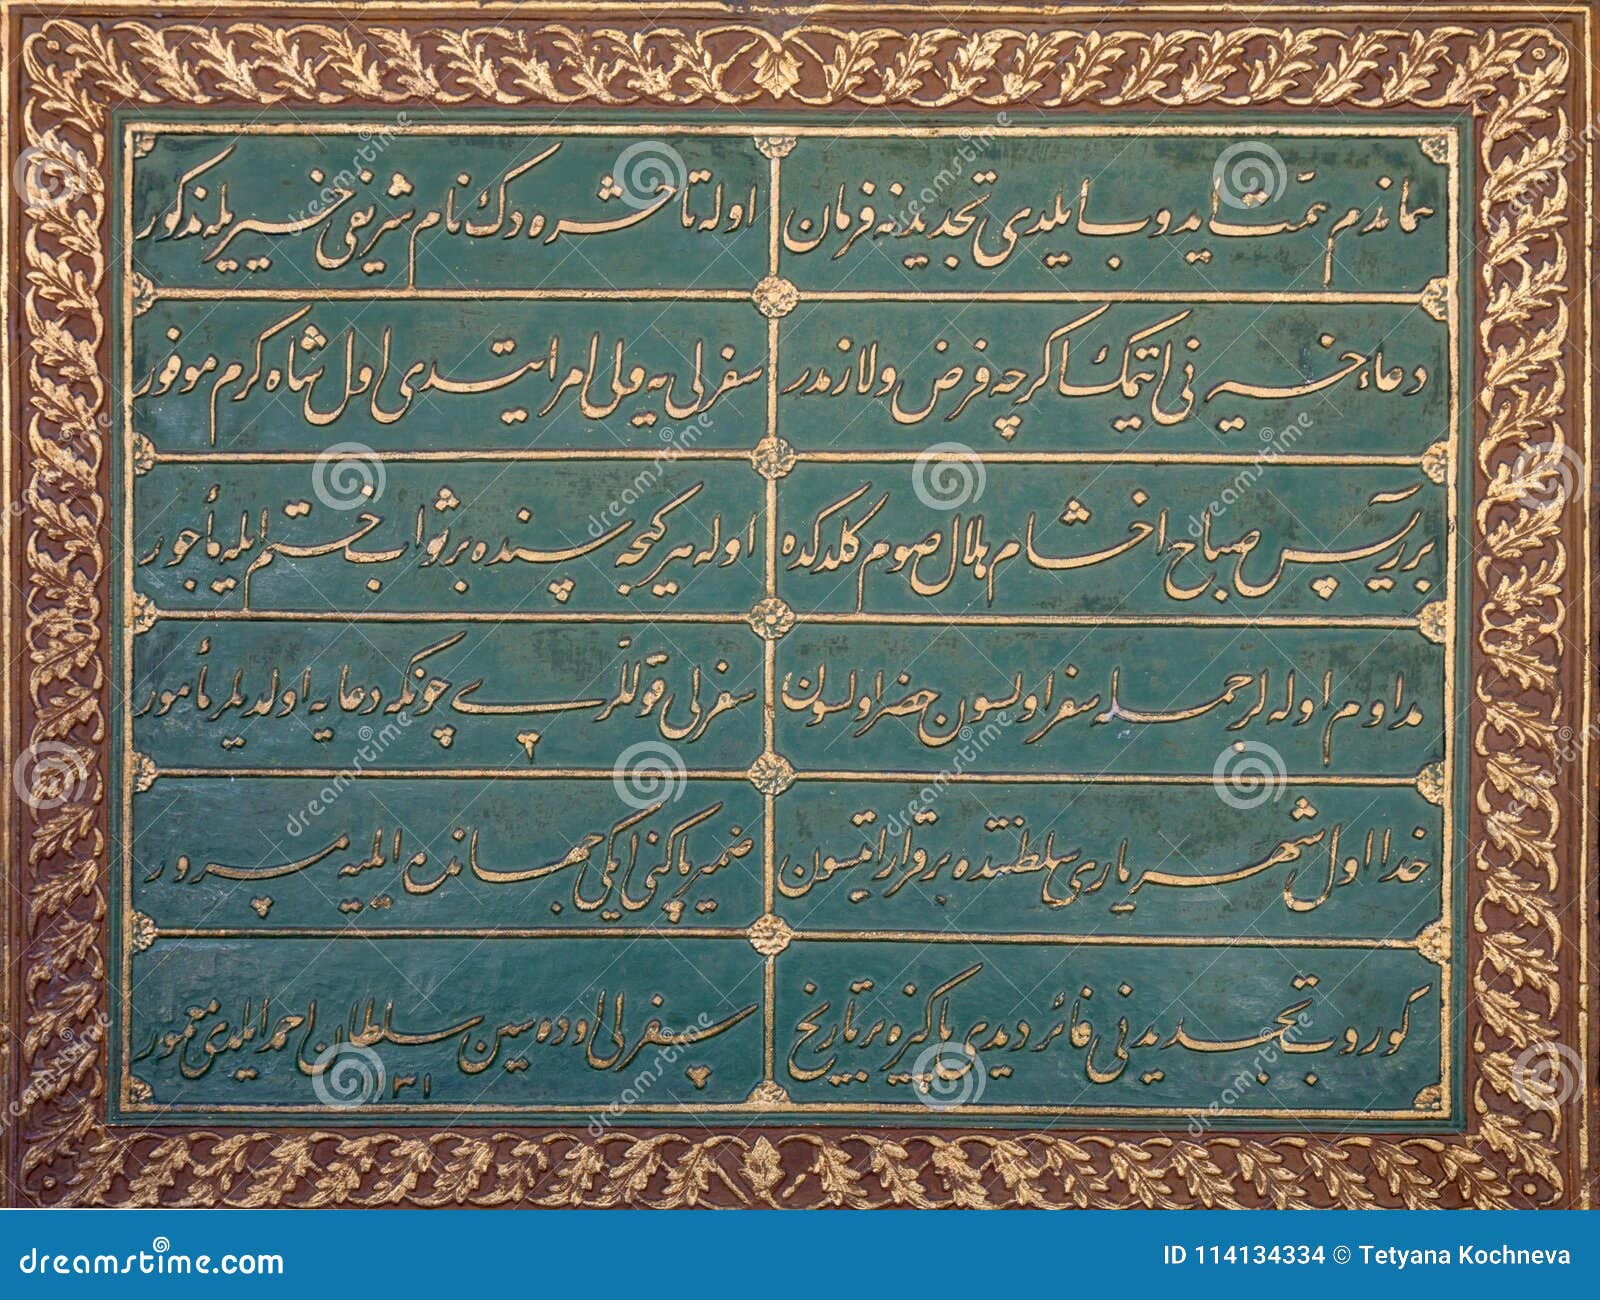 هماندم همت ایدوب ایلدی تجدیدنه فرمان اوله تا حشره دك نام شریفی خیریله مذكور
دعاء خیرنی ایتمك اكرچه فرض ولازمدر سفرلی یه ولی امر ایتدی اول شاه كرم موفور
برر یس صباح اخشام هلال صوم كلدكده اوله هر كیجه سنده بر ثواب ختم ایله مأجور
مداوم اوله لر جمله سفر اولسون حضر اولسون سفرلی قوللری چونكه دعایه اولدیلر مأمور
خدا اول شهریاری سلطنتنده برقرار ایتسون ضمیر پاكنی ایكی جهانده ایلیه مسرور
كوروب تجدیدنی فائز دیدی پاكیزه بر تاریخ سفرلی اوده سین سلطان احمد ایلدی معمور
١١٣١
dreamstime.com
ID 114134334 © Tetyana Kochneva